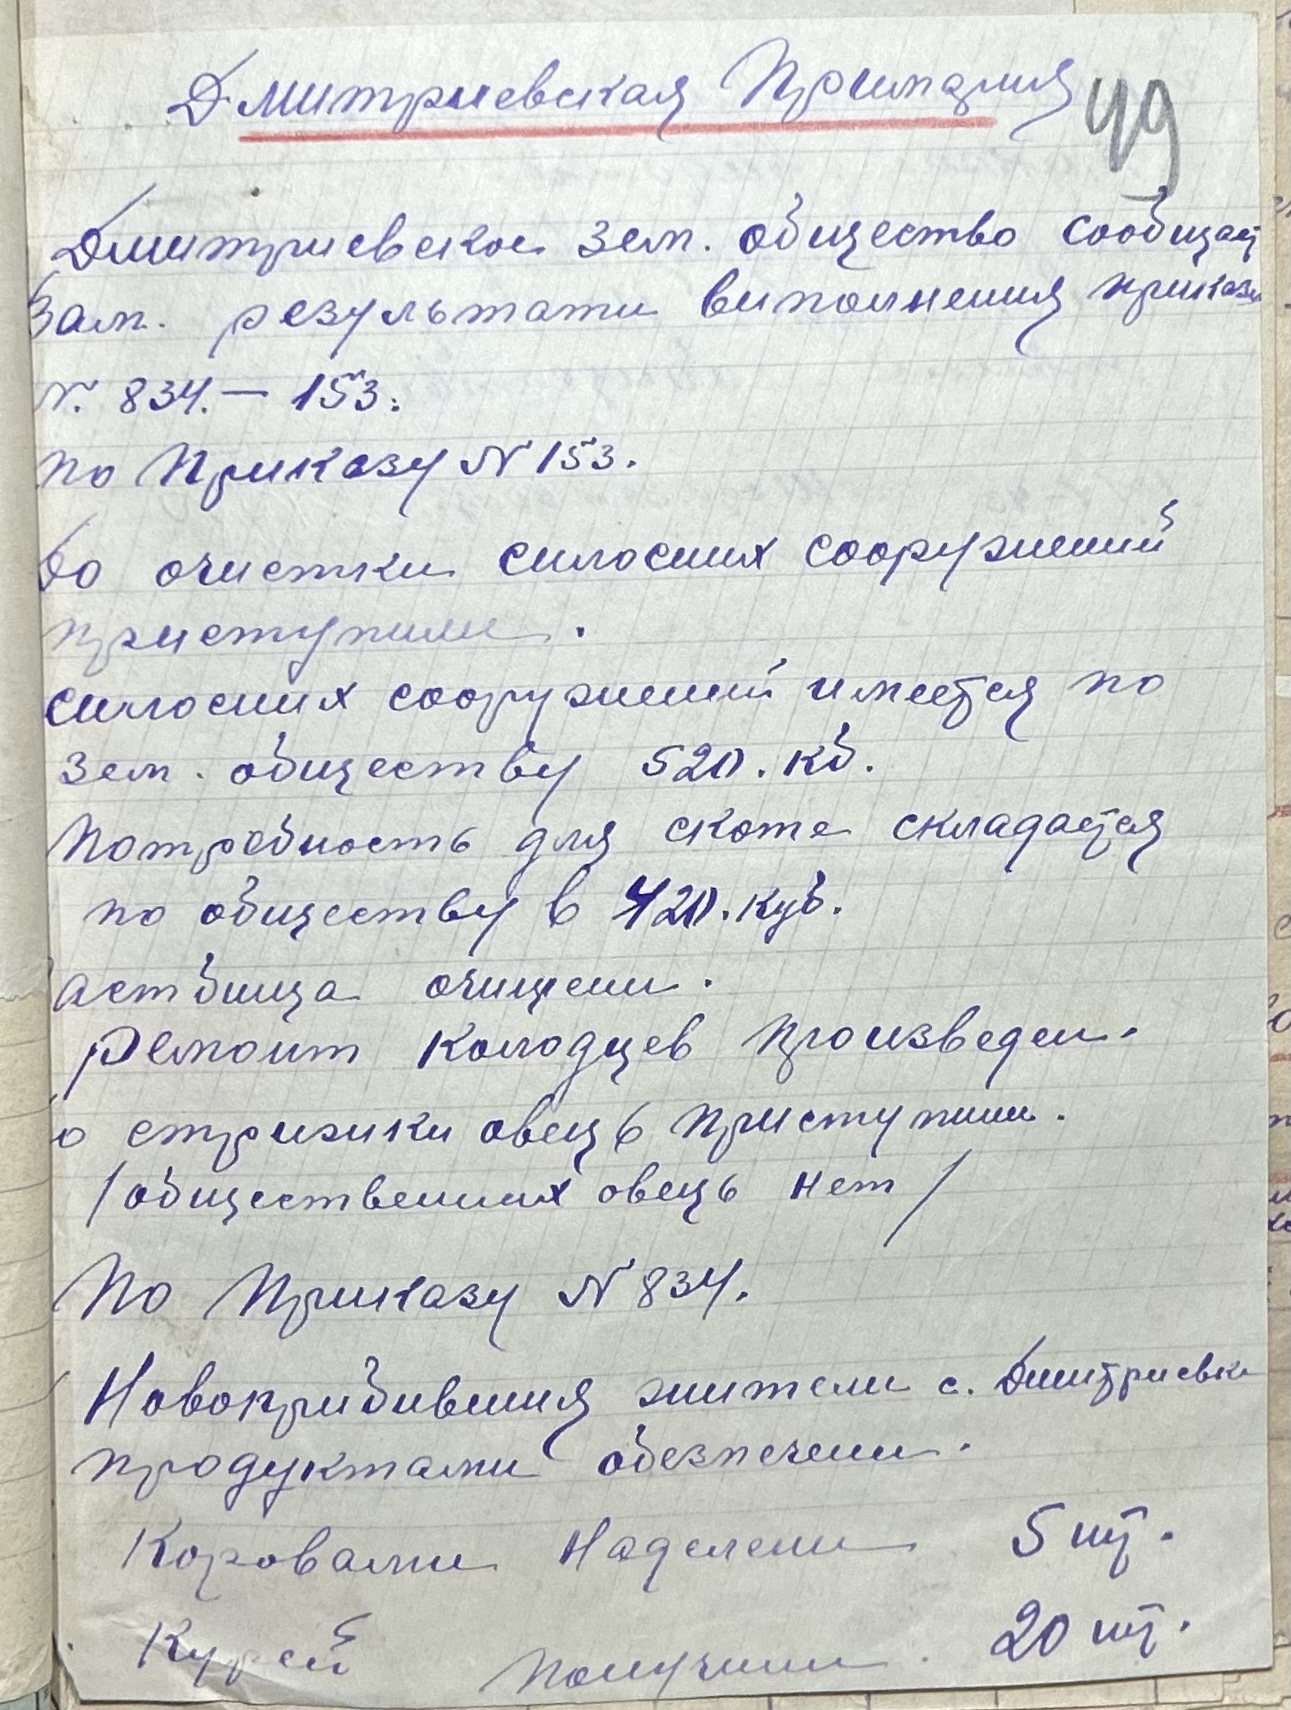 Дмитриевская Примария
49
Дмитриевское зем. общество сообщает
Вам. результати виполнения приказа
N. 834.— 153.
по Приказу N 153.
До очистки силосних сооружений
приступили.
силосних сооружений имеется по
зем. обществу 520. кб.
Потребность для скота складается
по обществу в 420. куб.
астбища очищени.
Ремонт колодцев произведен.
о стрижки овець приступили.
/общественних овець нет/
По Приказу N 834.
Новоприбившия жители с. Дмитриевки
продуктами обезпечени.
Коровами наделени 5 шт.
Курей получили. 20 шт.